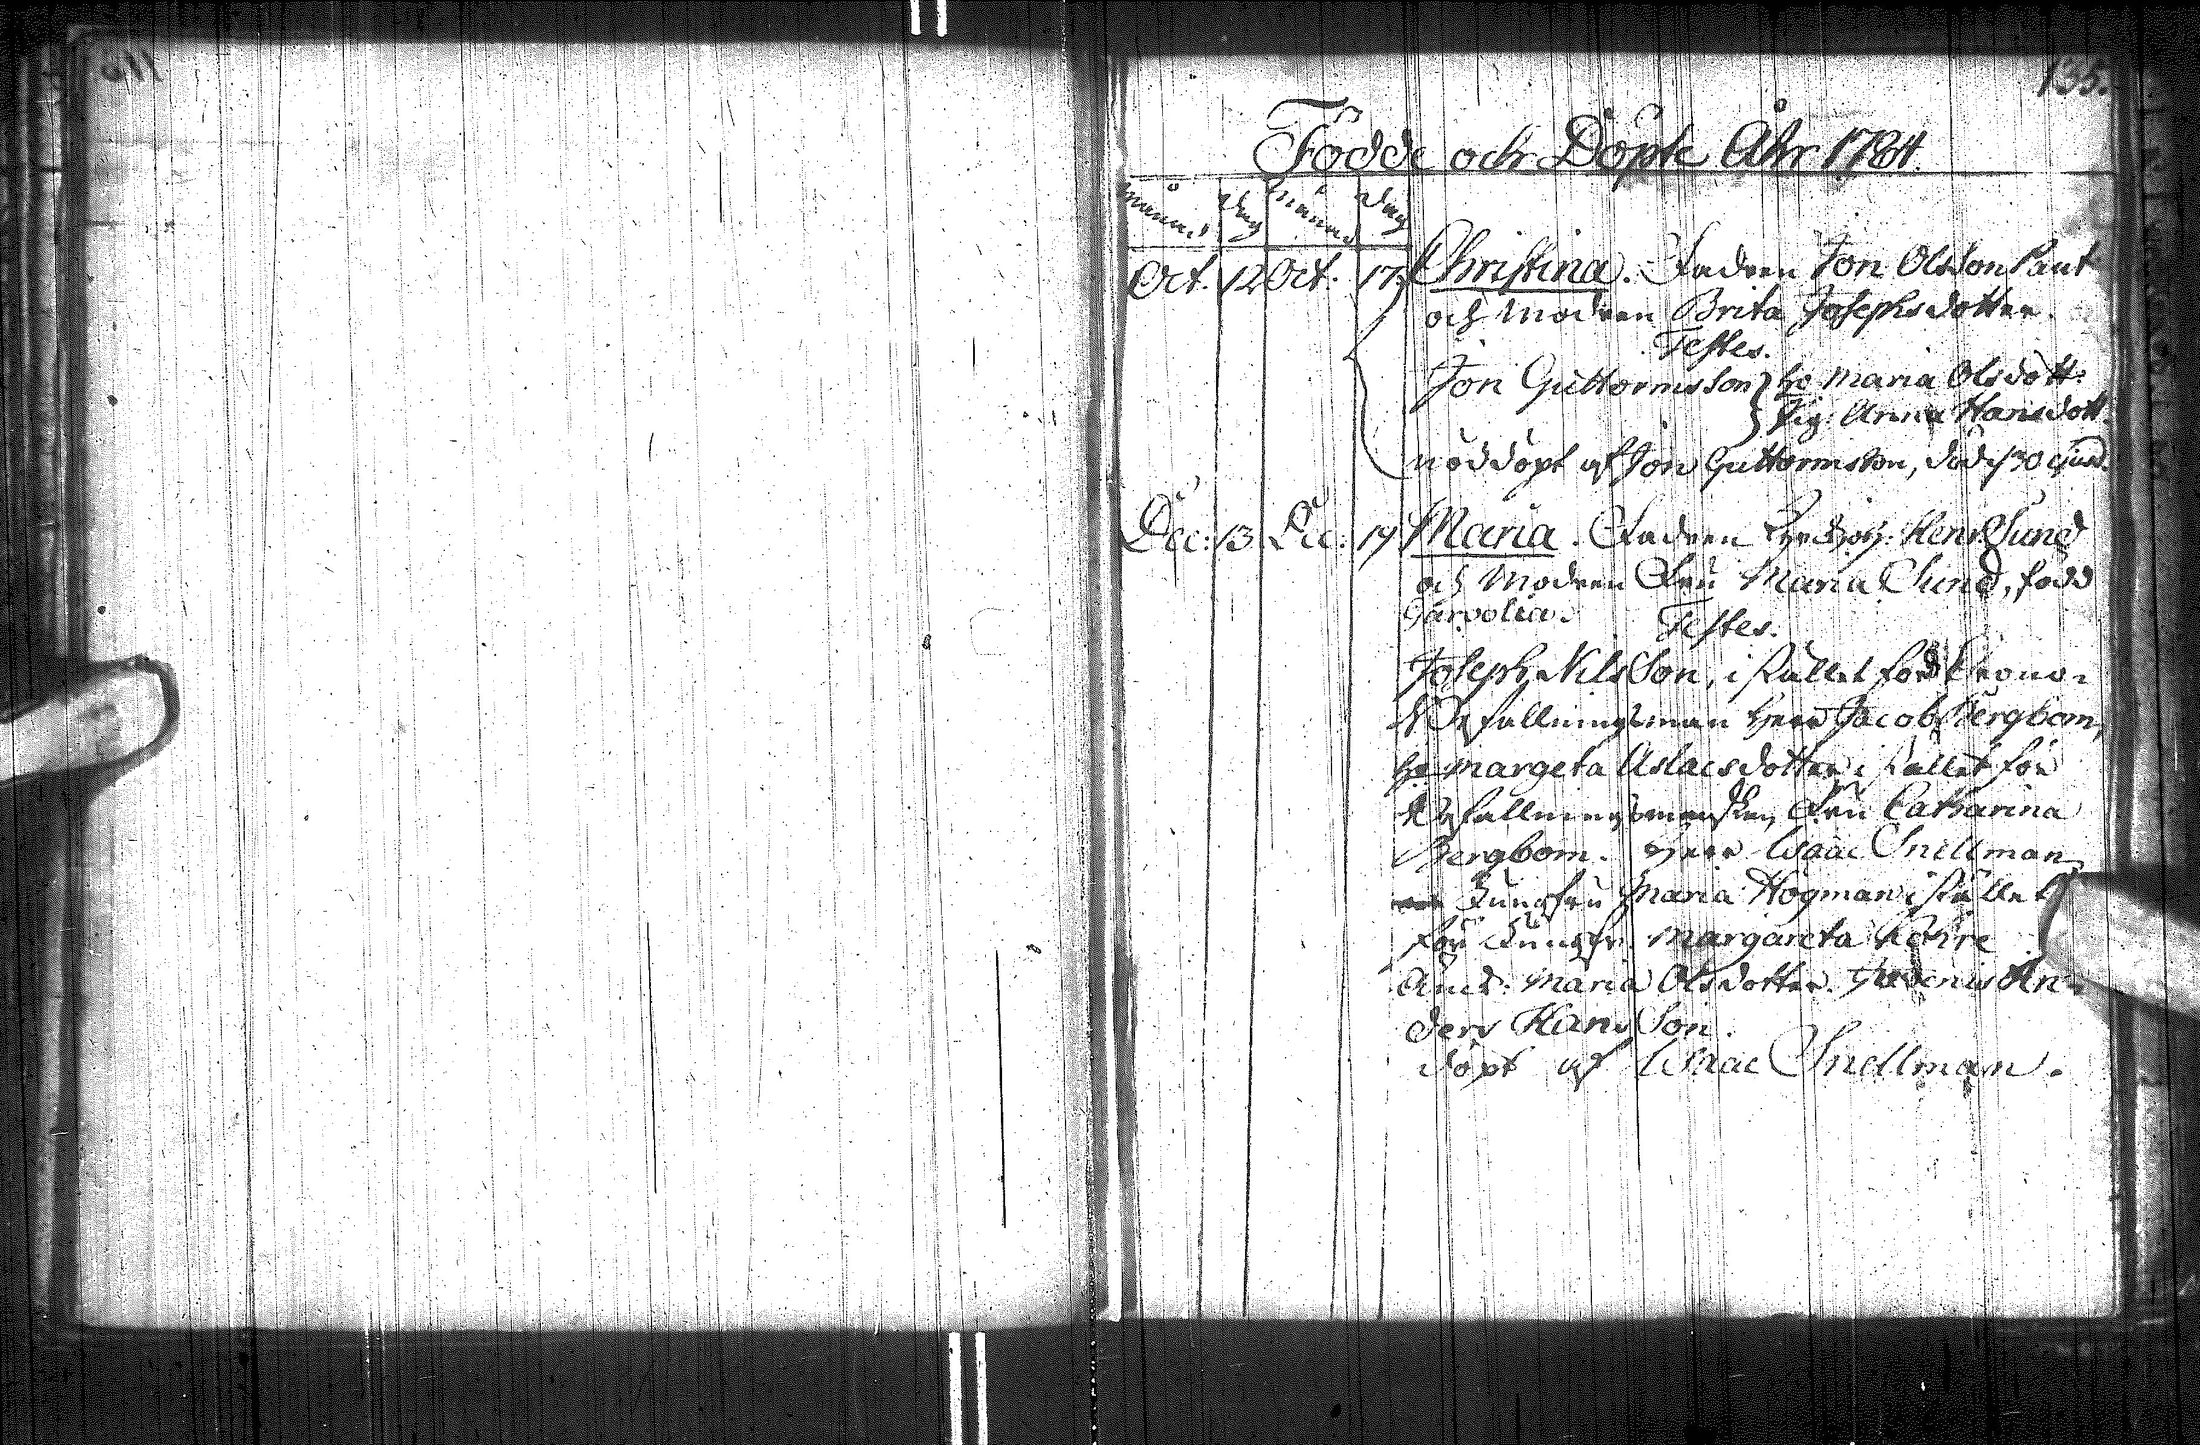 135.
Födde och Döpte Åhr 1784.
Månad Dag Månad Dag
Oct. 12 Oct. 17 Christina. Fadren Jon Olsson Paut
och Modren Brita Josephsdotter.
Testes.
Jon Guttormsson } hu Maria Olsdott:
} Pig. Anna Hansdott.
nöddöpt af Jon Guttormsson, död d 30
Dec: 13 Dec: 19 Maria. Fadren Henr. Sund
och Modren Fru Maria Sund, född
Garvolia.
Testes.
Joseph Nils Son, i stället för Crono-
Befallningsman Herr Jacob Bergbom,
hu Margeta Aslacsdotter i stället för
Befallningsmanskan Fru Catharina
Bergbom. Herr Isaac Snellman
Jungfru Maria Högman i stället
för Jungfr. Margareta
Maria Olsdotter. An-
ders Hans Son.
döpt af Isaac Snellman.